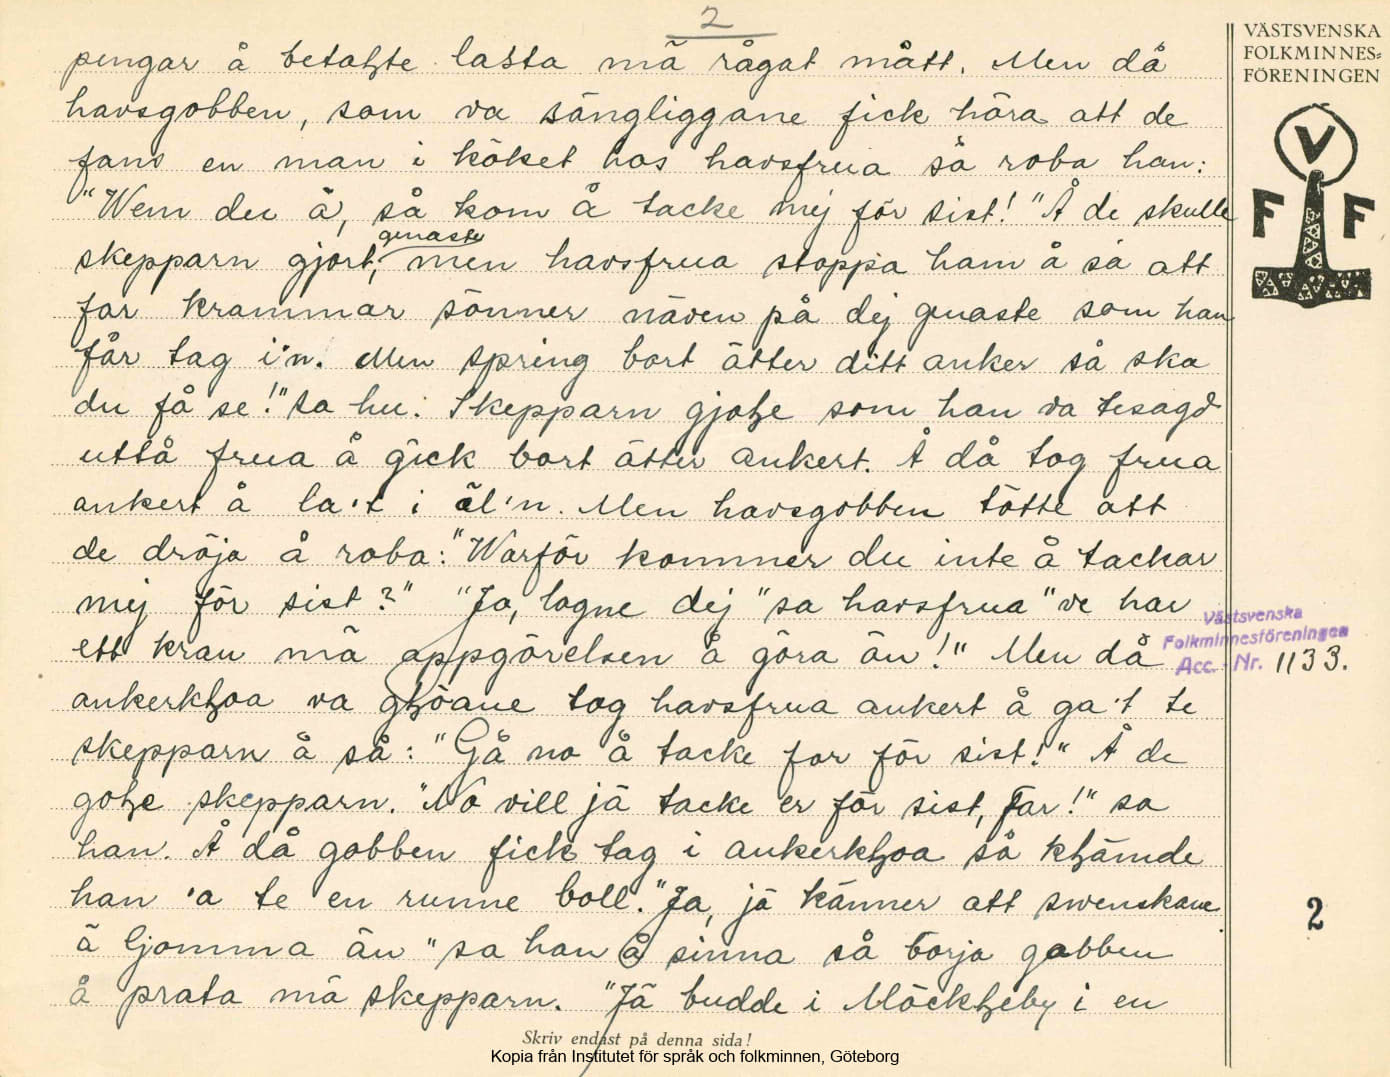 2
VÄSTSVENSKA
FOLKMINNES=
FÖRENINGEN
V
F F
pengar å betaɫte lasta mä rågat mått. Men då
havsgobben, som va sängliggane fick höra att de
fans en man i köket hos havsfrua så roba han:
"Wem du ä, så kom å tacke mej för sist!" Å de skulle
genaste
skepparn gjort, men havsfrua stoppa ham å sä att
far krammar sönner näven på dej genaste som han
får tag i'n. Men spring bort ätter ditt anker så ska
du få se!" sa hu. Skepparn gjoɫe som han va tesagd
uttå frua å gick bort ätter ankert. Å då tog frua
ankert å la't i äl'n. Men havsgobben tötte att
de dröja å roba: "Warför kommer du inte å tackar
mej för sist?" "Ja, lagne dej" sa havsfrua "ve har
ett kran mä appgörelsen å göra än!" Men då
ankerkɫoa va gɫöane tog havsfrua ankert å ga't te
skepparn å så: "Gå no å tacke far för sist!" Å de
goɫe skepparn. "No vill jä tacke er för sist, far!" sa
han. Å då gobben fick tag i ankerkɫoa så kɫämde
han 'a te en runne boll. "Ja, jä känner att swenskane
ä ljomma än" sa han å sinna så börja gobben
å prata mä skepparn. "Jä budde i Möckɫeby i en
Västsvenska
Folkminnesföreningen
Acc. Nr. 1133.
2
Skriv endast på denna sida!
Kopia från Institutet för språk och folkminnen, Göteborg